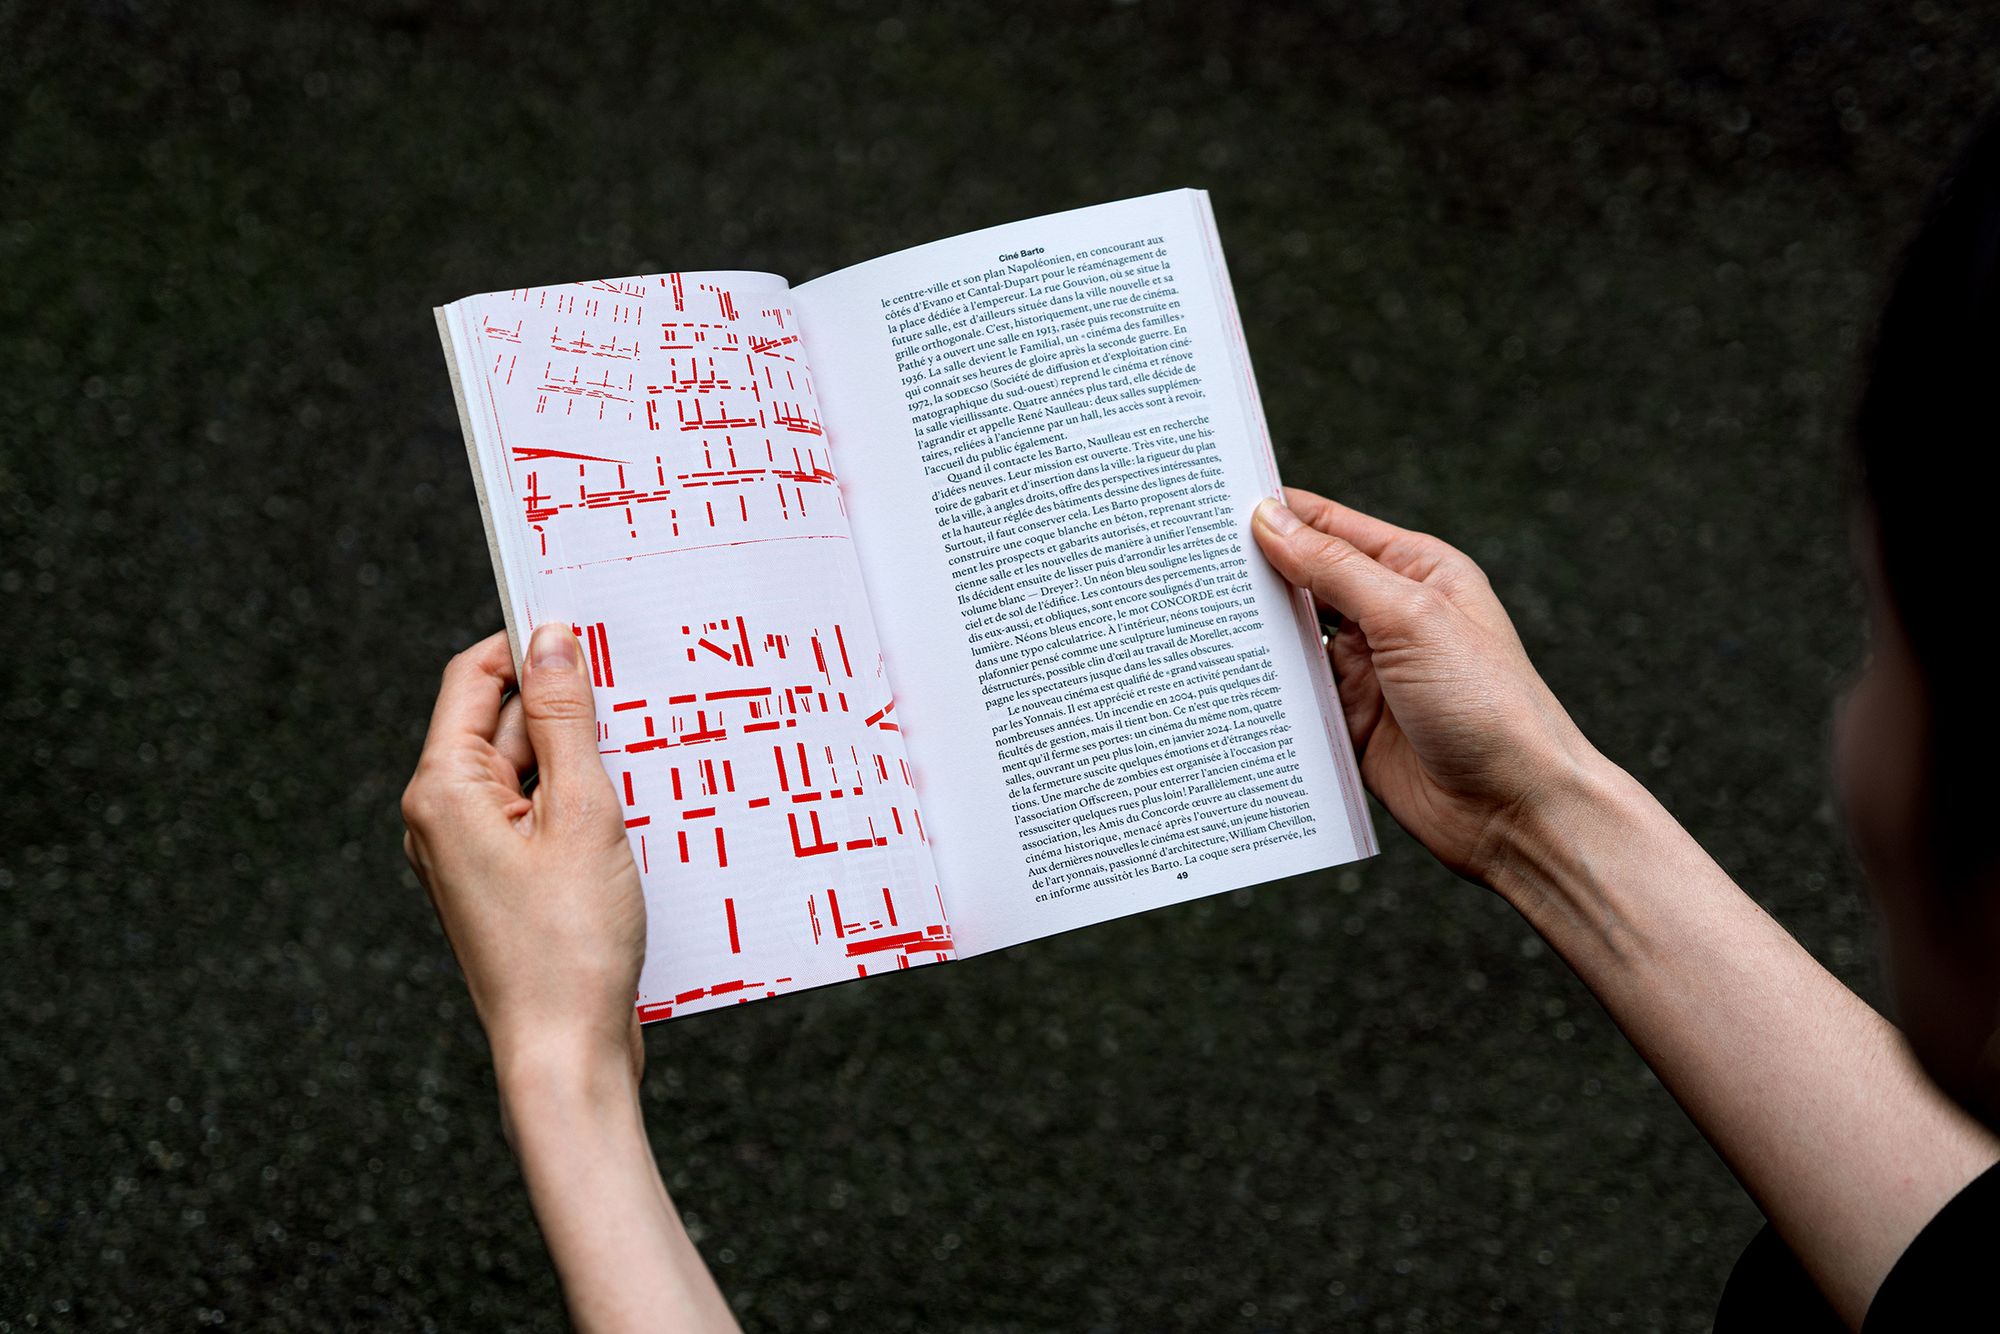 Ciné Barto
le centre-ville et son plan Napoléonien, en concourant aux
côtés d'Evano et Cantal-Dupart pour le réaménagement de
la place dédiée à l'empereur. La rue Gouvion, où se situe la
future salle, est d'ailleurs située dans la ville nouvelle et sa
grille orthogonale. C'est, historiquement, une rue de cinéma.
Pathé y a ouvert une salle en 1913, rasée puis reconstruite en
1936. La salle devient le Familial, un «cinéma des familles»
qui connait ses heures de gloire après la seconde guerre. En
1972, la SODECSO (Société de diffusion et d'exploitation ciné-
matographique du sud-ouest) reprend le cinéma et rénove
la salle vieillissante. Quatre années plus tard, elle décide de
l'agrandir et appelle René Naulleau: deux salles supplémen-
taires, reliées à l'ancienne par un hall, les accès sont à revoir,
l'accueil du public également.
Quand il contacte les Barto, Naulleau est en recherche
d'idées neuves. Leur mission est ouverte. Très vite, une his-
toire de gabarit et d'insertion dans la ville: la rigueur du plan
de la ville, à angles droits, offre des perspectives intéressantes,
et la hauteur réglée des bâtiments dessine des lignes de fuite.
Surtout, il faut conserver cela. Les Barto proposent alors de
construire une coque blanche en béton, reprenant stricte-
ment les prospects et gabarits autorisés, et recouvrant l'an-
cienne salle et les nouvelles de manière à unifier l'ensemble.
Ils décident ensuite de lisser puis d'arrondir les arrêtes de ce
volume blanc — Dreyer?. Un néon bleu souligne les lignes de
ciel et de sol de l'édifice. Les contours des percements, arron-
dis eux-aussi, et obliques, sont encore soulignés d'un trait de
lumière. Néons bleus encore, le mot CONCORDE est écrit
dans une typo calculatrice. À l'intérieur, néons toujours, un
plafonnier pensé comme une sculpture lumineuse en rayons
déstructurés, possible clin d'œil au travail de Morellet, accom-
pagne les spectateurs jusque dans les salles obscures.
Le nouveau cinéma est qualifié de «grand vaisseau spatial»
par les Yonnais. Il est apprécié et reste en activité pendant de
nombreuses années. Un incendie en 2004, puis quelques dif-
ficultés de gestion, mais il tient bon. Ce n'est que très récem-
ment qu'il ferme ses portes: un cinéma du même nom, quatre
salles, ouvrant un peu plus loin, en janvier 2024. La nouvelle
de la fermeture suscite quelques émotions et d'étranges réac-
tions. Une marche de zombies est organisée à l'occasion par
l'association Offscreen, pour enterrer l'ancien cinéma et le
ressusciter quelques rues plus loin! Parallèlement, une autre
association, les Amis du Concorde œuvre au classement du
cinéma historique, menacé après l'ouverture du nouveau.
Aux dernières nouvelles le cinéma est sauvé, un jeune historien
de l'art yonnais, passionné d'architecture, William Chevillon,
en informe aussitôt les Barto. La coque sera préservée, les
49